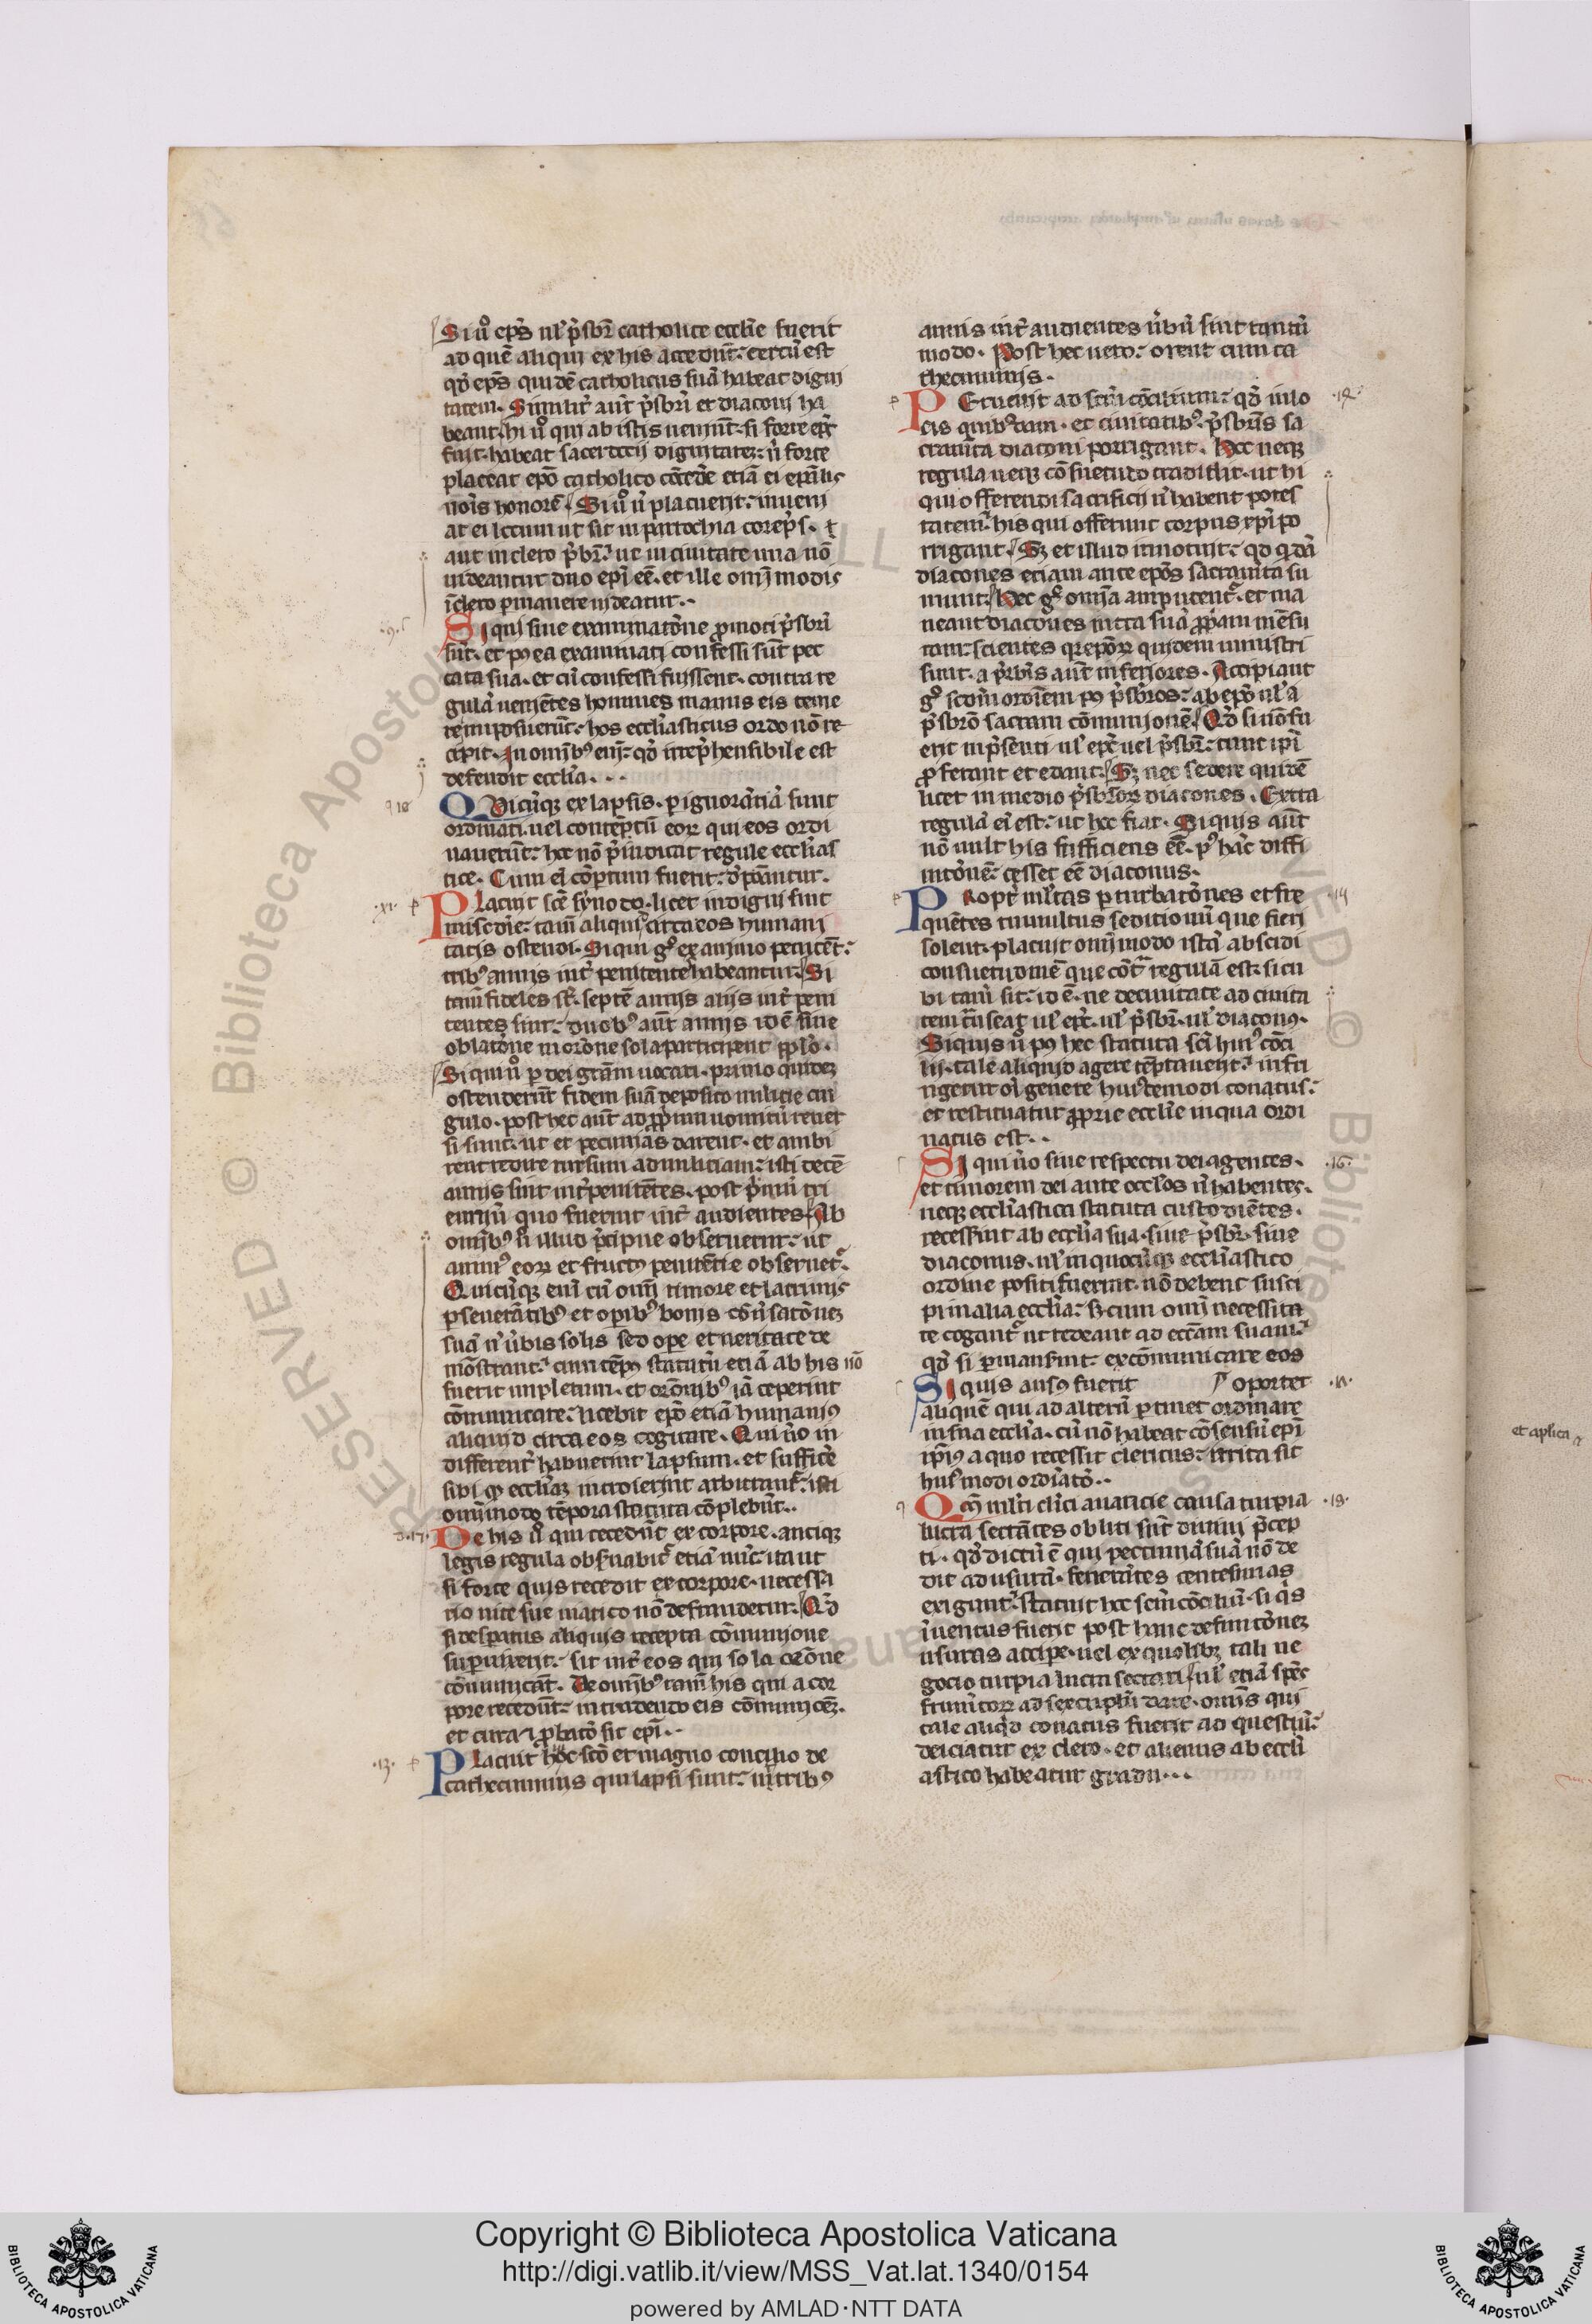 Si ů ep̄s ul̓ p̄sbr̄ catholice eccl̄ie fuerit
ad quē aliqui ex his accedūt: certū est
qd̓ ep̄s quidē catholicus suā habeat digni
tatem. Similit̓ aūt p̄sbr̄i et diaconi ha
beant. hi ů qui ab istis ueniūt. si forte ep̄c̄
fuit. habeat sacerdocij dignitatez: n̄ forte
placeat ep̄o catholico cōcēde etiā ei ep̄alis
noīs honorē. Si ů n̄ placuerit: inueni
at ei locum ut sit in parrochia corep̄s.
aut in clero p̄sbr̄: ut in ciuitate una nō
uideantur duo ep̄i eē. et ille onīmodis
ī clero p̱manere uideatur.
.9.
Si qui sine examinatōne ꝓmoti p̄sbr̄i
sūt. et pꝰ ea examinati confessi sūt pec
cata sua. et cū confessi fuissent. contra re
gulā uenientes homines manus eis teme
re īposuerūt: hos eccl̄iasticus ordo nō re
cipit. In omībꝰ eni: qd̓ irrep̄hensibile est
defendit eccl̄ia.
10
Quicūqꝫ ex lapsis. p̱ ignorātiā sunt
ordinati. uel contēptū eoꝝ qui eos ordi
nauerūt: hoc nō p̄iudicat regule eccl̄ias
tice. Cum eī cōp̱tum fuerit: d̓ponāntur.
.xi.
Placuit sc̄e synodo. licet indigni sint
misc̄die: tam̄ aliquid circa eos humani
tatis ostendi. Si qui gͦ ex animo penitēt:
tribꝰ annis int̓ penitentes habeantur. Si
tam̄ fideles sūt. septē annis alijs int̓ peni
tentes sint: duobꝰ aūt annis idē sine
oblatōne in orōne sola participent pp̄lo.
Si qui ů p̱ dei gr̄am uocati. primo quidez
ostenderūt fidem suā deposito milicie cin
gulo. post hec aūt ad ꝓpriū uomitū reuer
si sunt: ut et pecunias darent. et ambi
rent redire rursum ad miliciam: isti decē
annis sint int̓ penitētes. post p̄imū tri
ennū quo fuerint int̓ audientes. Ab
omībꝰ ů illud p̄cipue obseruetur: ut
animꝰ eoꝝ et fructꝰ penitētie obseruet̓.
Quicūqꝫ enī cū omī timore et lacrimis
p̱seuerātibꝰ et opibꝰ bonis cōuersatōnez
suā n̄ ůbis solis sed ope et ueritate de
mōstrant: cum tēpꝰ statutū etiā ab his nō
fuerit impletum. et orōnibꝰ iā ceperint
cōmunicare: licebit ep̄o etiā humaniꝰ
aliquid circa eos cogitare. Qui ůo in
different̓ habuerint lapsum. et sufficē
sibi qd̓ eccl̄iaꝫ introierint arbitrant̓: isti
onīmodo tēpora statuta cōplebūt.
.17.
De his ů qui recedūt ex corpore. antiqꝫ
legis regula obs̓uabit̓ etiā nūc: ita ut
si forte quis recedit ex corpore. necessa
rio uite sue uiatico nō defraudetur. Qd̓
si desp̱atus aliquis recepta cōmunione
sup̱uixerit: sit int̓ eos qui sola orōne
cōmunicāt. De omībꝰ tam̄ his qui a cor
pore recedūt: in tradendo eis cōmunionē.
et cura ⁊ ꝓbatō sit ep̄i.
.13.
Placuit hoc sc̄o et magno concilio de
cathecuminis qui lapsi sunt: ut tribꝰ
annis int̓ audientes ůbū sint tantū
modo. Post hec uero: orent cum ca
thecuminis.
.14.
Peruenit ad sc̄m cōcilium: qd̓ in lo
cis quibꝰdam. et ciuitatibꝰ. p̄sbr̄is sa
cramēta diaconi porrigant. Hec neqꝫ
regula neqꝫ cōsuetudo tradidit. ut hi
qui offerendi sacrificij n̄ habent potes
tatem: his qui offerunt corpus xp̄i po
rrigant. Sꝫ et illud innotuit: qd̓ q̇dā
diacones etiam ante ep̄os sacramēta su
munt. Hec gͦ omīa amputent̓. et ma
neant diacones intra suā ꝓpriam mēsu
ram: scientes q̓ ep̄oꝝ quidem ministri
sunt. a p̄sbr̄is aūt inferiores. Accipiant
gͦ sc̄dm ordinem pꝰ p̄sbr̄os: ab ep̄o ul̓ a
p̄sbr̄o sacram cōmunionē. Qd̓ si nō fu
erit in p̄senti ul̓ ep̄c uel p̄sbr̄: tunc ip̄i
ꝓferant et edant. Sꝫ nec sedere quidē
licet in medio p̄sbr̄os diacones. Extra
regulā eī est: ut hoc fiat. Si quis aūt
nō uult his sufficiens eē. pꝰ hāc diffi
nitōnē: cesset eē diaconus.
Propt̓ mltas p̱turbatōnes et fre
quētes tumultus seditionū que fieri
solent: placuit onīmodo istā abscidi
consuetudinē que cōt̓ regulā est: sicu
bi tam̄ sit: id ē. ne de ciuitate ad ciuita
tem trāseat ul̓ ep̄c. ul̓ p̄sbr̄. ul̓ diaconꝰ.
Si quis ů pꝰ hec statuta sc̄i huiꝰ cōci
lij. tale aliquid agere tēptauerit: infri
ngetur oī genere huiꝰcemodi conatus:
et restituatur ꝓprie eccl̄ie in qua ordi
natus est.
.16.
Si qui ůo sine respectu dei agentes.
et timorem dei ante occl̓os n̄ habentes.
neqꝫ eccl̄iastica statuta custodiētes.
recesserint ab eccl̄ia sua. siue p̄sbr̄. siue
diaconus. ul̓ in quocūqꝫ eccl̄iastico
ordine positi fuerint. nō debent susci
pi in alia eccl̄ia: sꝫ cum omī necessita
te cogant̓ ut redeant ad eccl̄iam suam:
qd̓ si p̱manserint: excōmunicare eos
Si quis ausꝰ fuerit oportet
aliquē qui ad alterū p̱tinet ordinare
in sua eccl̄ia. cū nō habeat cōsensū ep̄i
ip̄iꝰ a quo recessit clericus: irrita sit
huiꝰmodi ordīatō.
.18.
Qm̄ mlti cl̄ici auaricie causa turpia
lucra sectātes obliti sūt diuini p̄cep
ti. qd̓ dictū ē qui pecuniā suā nō de
dit ad usurā. fenerātes centesimas
exigunt: statuit hoc sc̄m cōciliū. si q̇s
īuentus fuerit post hanc definitōnez
usuras accipe. uel ex quolibꝫ tali ne
gocio turpia lucra sectari. ul̓ etiā sp̄es
frumētoꝝ ad sexcuplū dare. omīs qui
tale aliqd̓ conatus fuerit ad questū:
deiciatur ex clero. et alienus ab eccl̄i
astico habeatur gradu.
et aplica
Copyright © Biblioteca Apostolica Vaticana
http://digi.vatlib.it/view/MSS_Vat.lat.1340/0154
powered by AMLAD·NTT DATA
BIBLIOTECA APOSTOLICA VATICANA
BIBLIOTECA APOSTOLICA VATICANA